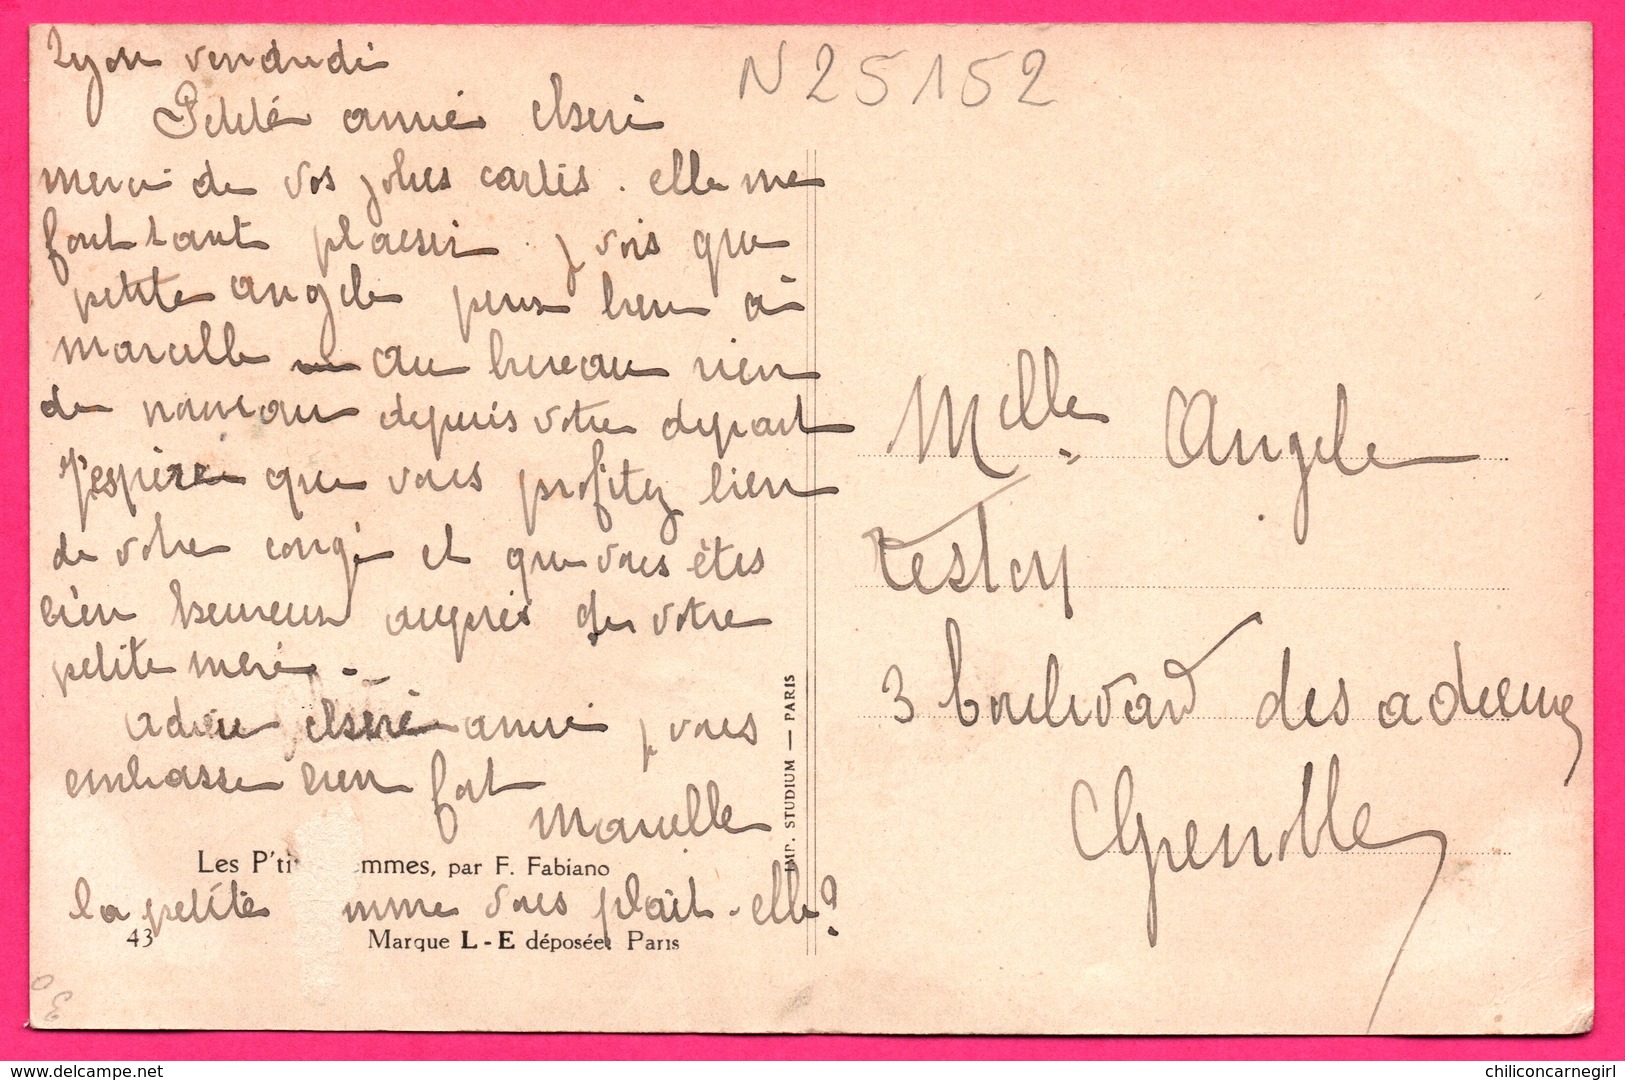 Lyon vendredi
N 25152
Petite amie cheri
merci de vos jolies cartes. elle me
font tant plaisir. j vois que
petite angele pense bien à
marcelle au bureau rien
de nouveau depuis votre depart
J'espère que vous profitez bien
de votre congé et que vous êtes
bien heureux auprès de votre
petite mère
adieu cheri amie j vous
embrasse bien fort
Marcelle
Les P'ti emmes, par F. Fabiano
la petite mme vous plait-elle?
43 Marque L-E déposée, Paris
IMP. STUDIUM — PARIS
Melle Angele
Testoy
3 boulevard des adieux
Grenoble
30
delcampe.net
chiliconcarnegirl